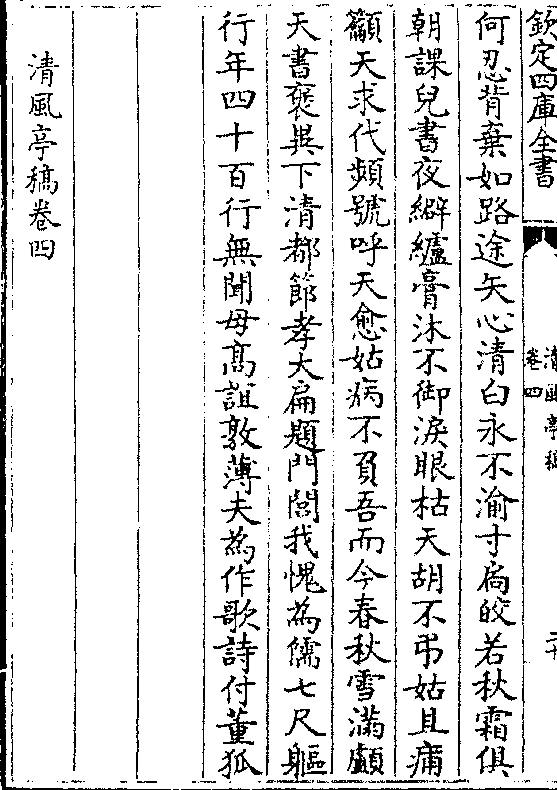 欽定四庫全書
清風亭稿
卷四
二十
何忍背棄如路途矢心清白永不渝寸扄皎若秋霜俱
朝課兒書夜辟纑膏沐不御淚眼枯天胡不弔姑且痡
籲天求代頻號呼天愈姑病不負吾而今春秋雪滿顱
天書褒異下清都節孝大扁題門閭我愧為儒七尺軀
行年四十百行無聞母髙誼敦薄夫為作歌詩付董狐
清風亭稿卷四